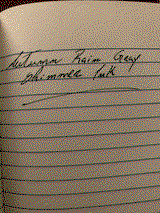 Autumn Rain Grey
Shimmer Ink